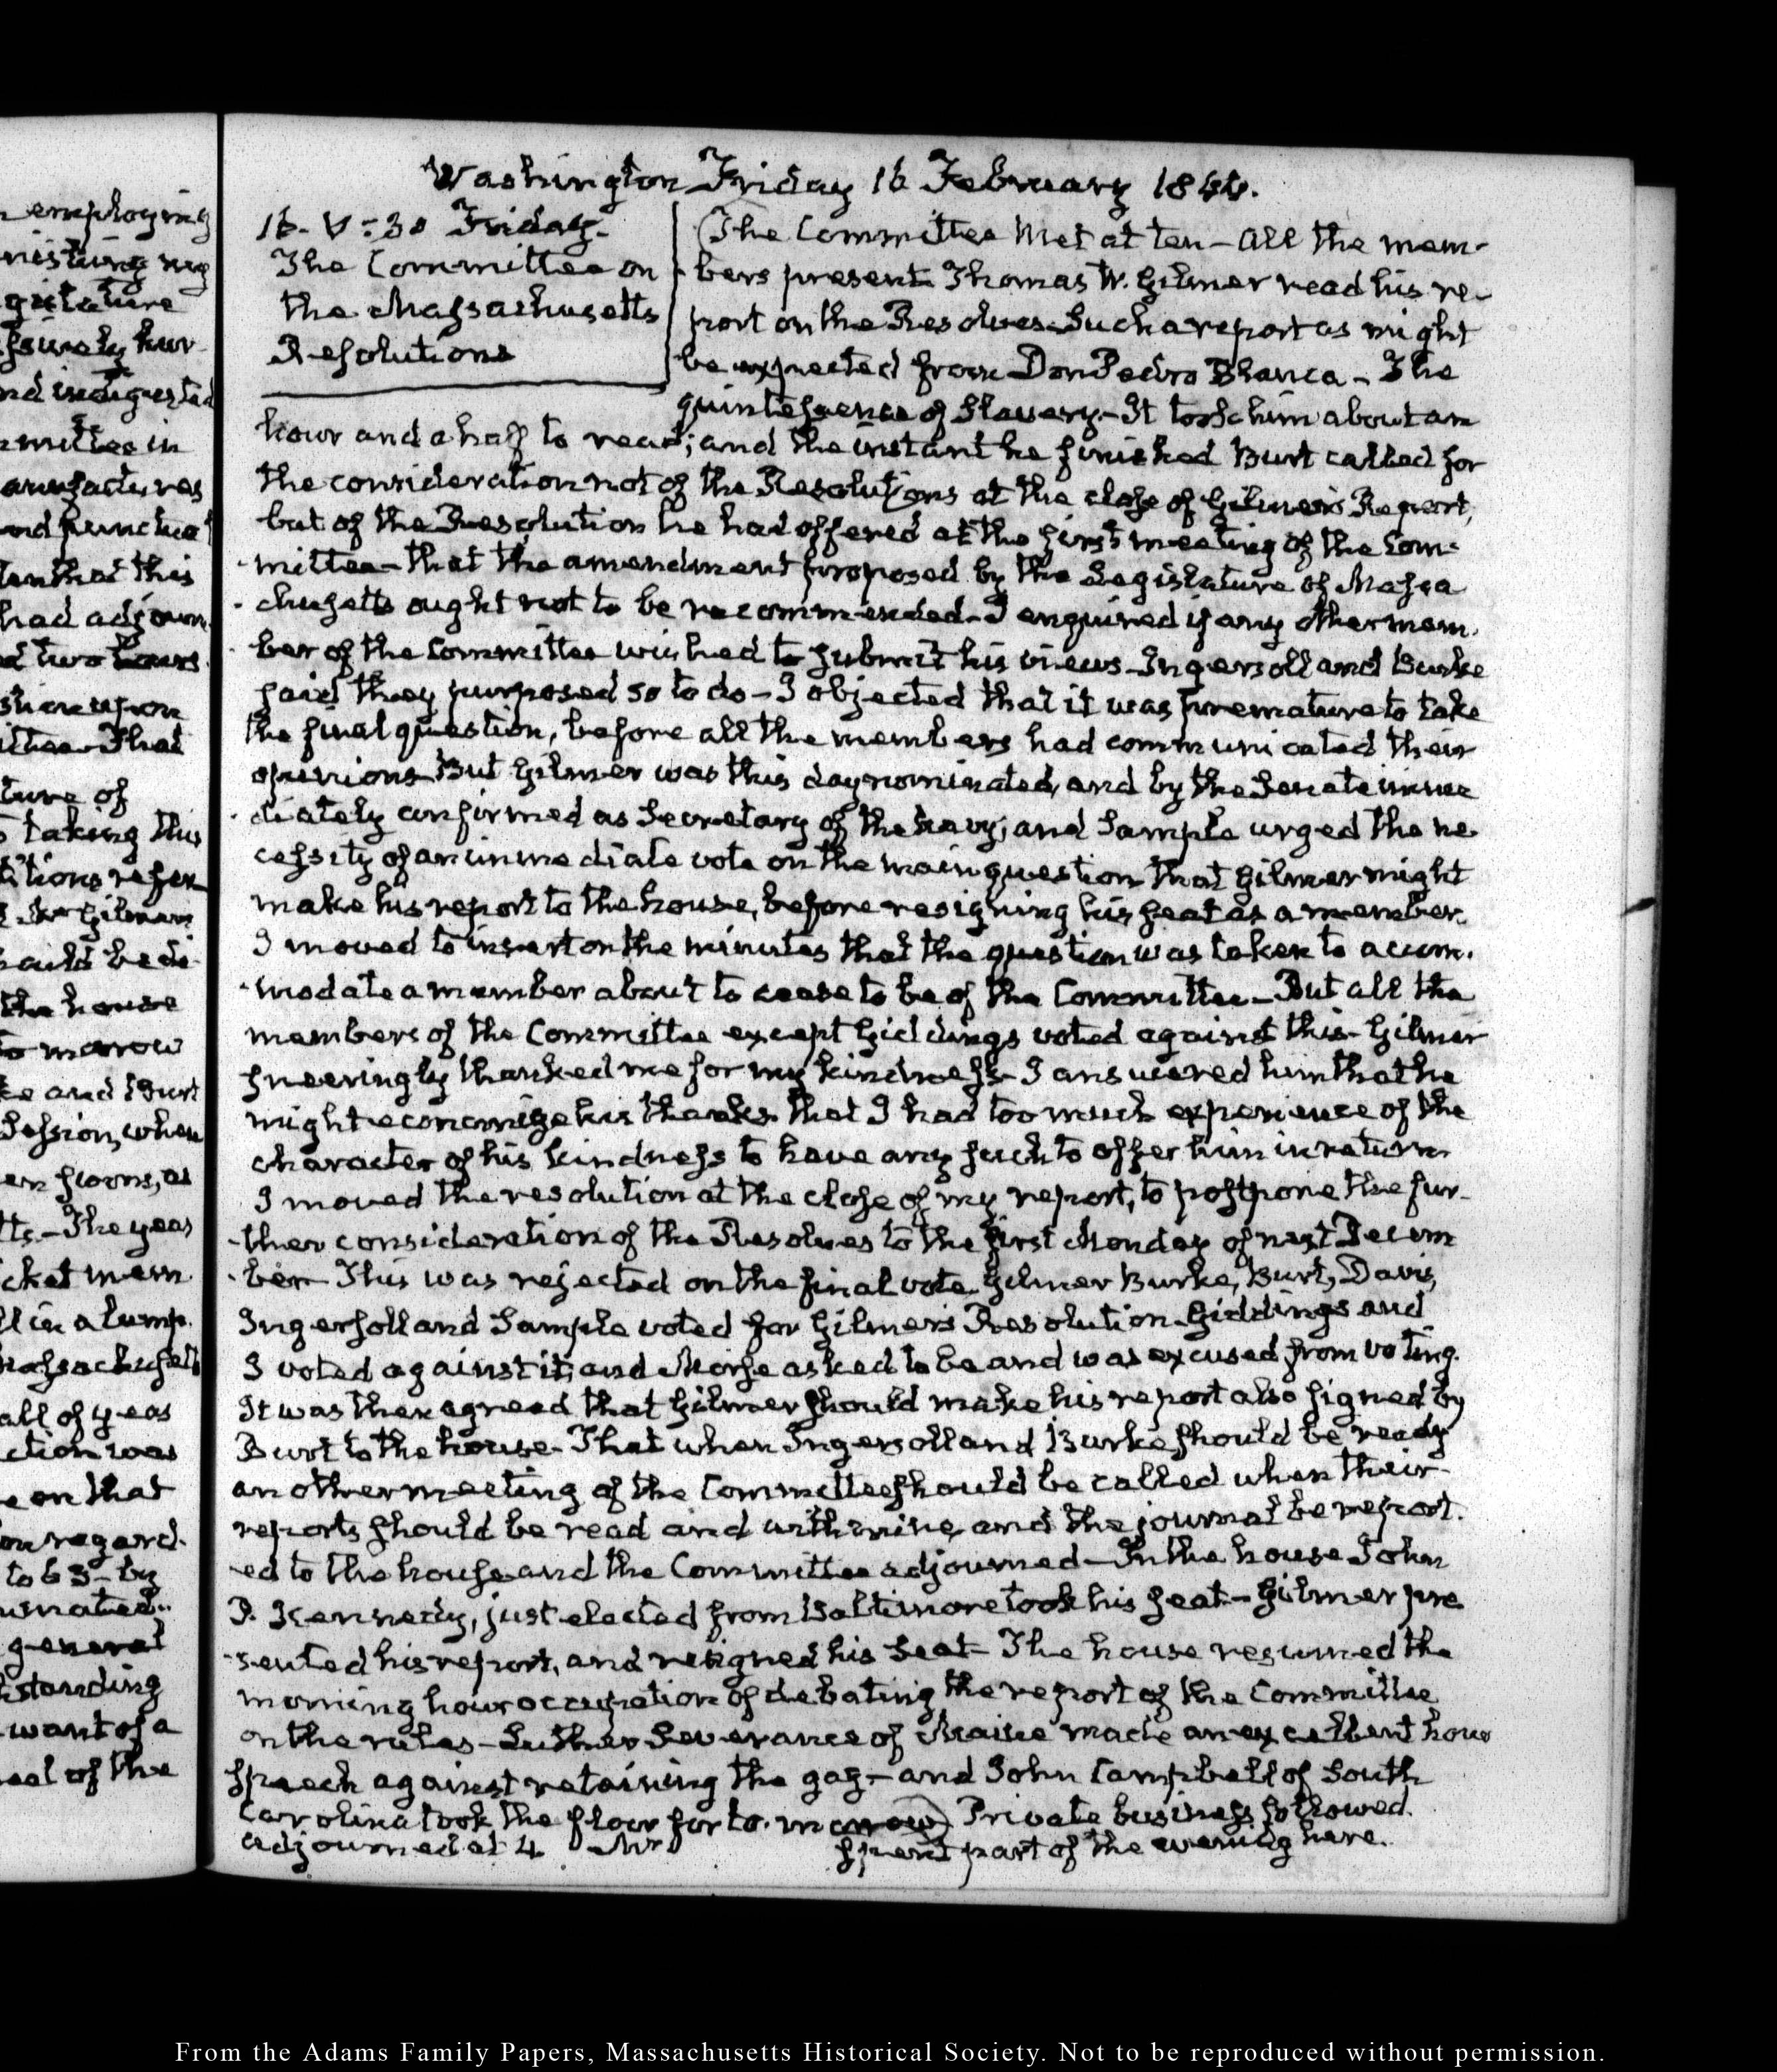 employing
nishing
gislature
nd indigested
mmittee in
anufactures
and punctual
ten that this
had adjourn
d two hours
ittee. That
ture of
taking this
titions refer
Mr Gilmer
the house
to morrow
ke and Burt
Session, when
ts. The yeas
cket mem
ll in a lump.
Massachusetts
all of yeas
ction was
e on that
on regard
to 63 – by
general
standing
want of a
eal of the
Washington Friday 16 February 1844.
16. V:30 Friday.
The Committee on
the Massachusetts
Resolutions
The Committee met at ten – All the mem-
bers present. Thomas W. Gilmer read his re-
port on the Resolves. Such a report as might
be expected from Don Pedro Blanca – The
quintessence of Slavery. – It took him about an
hour and a half to read; and the instant he finished Burt called for
the consideration not of the Resolutions at the close of Gilmer's Report,
but of the Resolution he had offered at the first meeting of the Com-
mittee – that the amendment proposed by the Legislature of Massa
chusetts ought not to be recommended – I enquired if any other mem-
ber of the Committee wished to submit his views – Ingersoll and Burke
said they purposed so to do – I objected that it was premature to take
the final question, before all the members had communicated their
opinions – But Gilmer was this day nominated, and by the Senate imme
diately confirmed as Secretary of the Navy; and Sample urged the ne-
cessity of an immediate vote on the main question that Gilmer might
make his report to the house, before resigning his seat as a member.
I moved to insert on the minutes that the question was taken to accom-
modate a member about to cease to be of the Committee – But all the
members of the Committee except Giddings voted against this – Gilmer
sneeringly thanked me for my kindness – I answered him that he
might economize his thanks that I had too much experience of the
character of his kindness to have any such to offer him in return
I moved the resolution at the close of my report, to postpone the fur-
ther consideration of the Resolves to the first Monday of next Decem
ber – This was rejected on the final vote. Gilmer Burke, Burt, Davis,
Ingersoll and Sample voted for Gilmer's Resolution – Giddings and
I voted against it, and Morse asked to be and was excused from voting.
It was then agreed that Gilmer should make his report also signed by
Burt to the house – That when Ingersoll and Burke should be ready
another meeting of the Committee should be called when their
reports should be read and with mine, and the journal be report-
ed to the house and the Committee adjourned – In the house John
P. Kennedy, just elected from Baltimore took his seat – Gilmer pre
sented his report, and resigned his seat – The house resumed the
morning hour occupation of debating the report of the Committee
on the rules – Luther Severance of Maine made an excellent hour
speech against retaining the gag – and John Campbell of South
Carolina took the floor for to-morrow) Private business followed.
adjourned at 4. Mr spent part of the evening here.
From the Adams Family Papers, Massachusetts Historical Society. Not to be reproduced without permission.